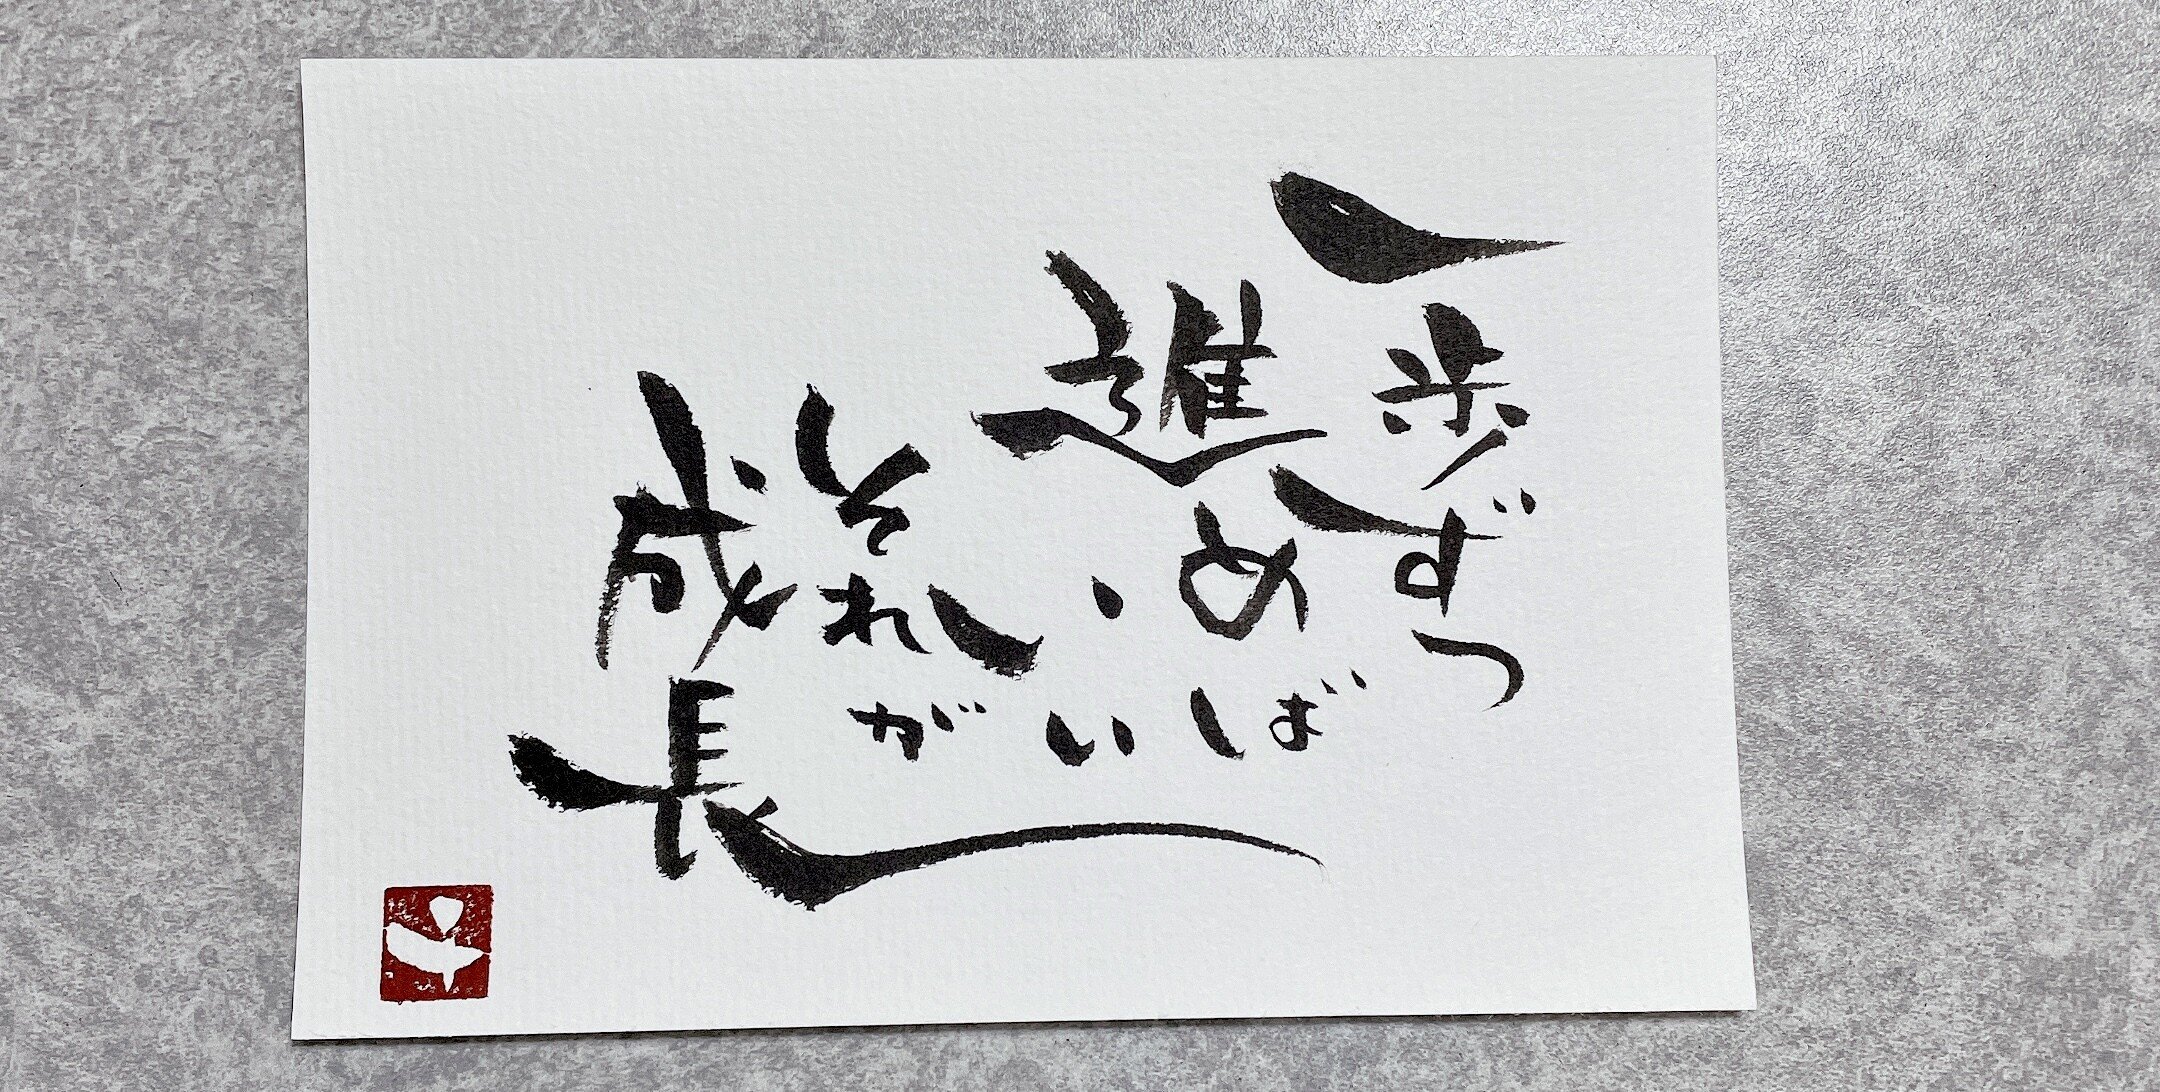 一歩ずつ
進めば
いい
それが
成長